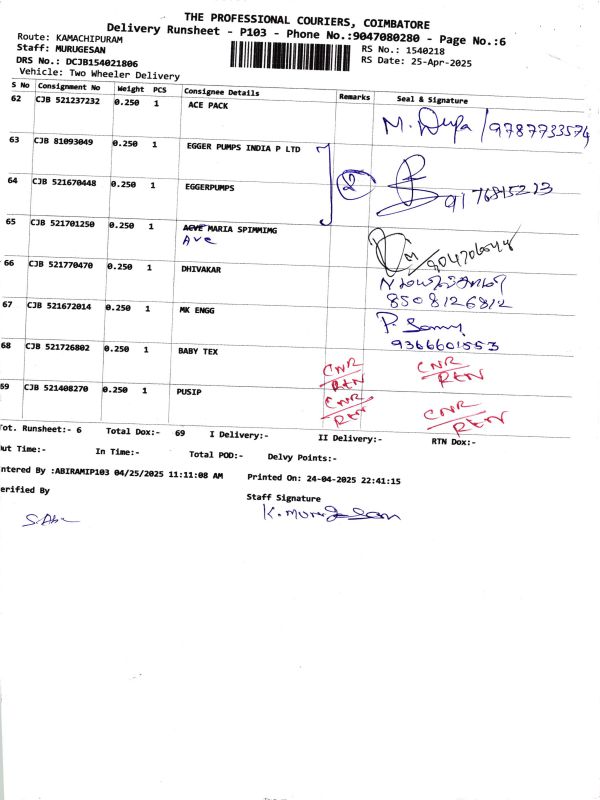 THE PROFESSIONAL COURIERS, COIMBATORE
Delivery Runsheet - P103 - Phone No.:9047080280 - Page No.:6
Route: KAMACHIPURAM
RS No.: 1540218
Staff: MURUGESAN
RS Date: 25-Apr-2025
DRS No.: DCJB154021806
Vehicle: Two Wheeler Delivery
S No Consignment No Weight PCS Consignee Details Remarks Seal & Signature
62 CJB 521237232 0.250 1 ACE PACK
9787733574
63 CJB 81093049 0.250 1 EGGER PUMPS INDIA P LTD
2
64 CJB 521670448 0.250 1 EGGERPUMPS
65 CJB 521701250 0.250 1 ACVE MARIA SPIMMIMG
Ave
66 CJB 521770470 0.250 1 DHIVAKAR
8508126812
67 CJB 521672014 0.250 1 MK ENGG
P. Samy
9366601553
68 CJB 521726802 0.250 1 BABY TEX CNR RTN CNR RTN
69 CJB 521408270 0.250 1 PUSIP CNR RTN CNR RTN
Tot. Runsheet:- 6 Total Dox:- 69 I Delivery:- II Delivery:- RTN Dox:-
Out Time:- In Time:- Total POD:- Delvy Points:-
ntered By :ABIRAMIP103 04/25/2025 11:11:08 AM Printed On: 24-04-2025 22:41:15
erified By Staff Signature
K. Murugesan